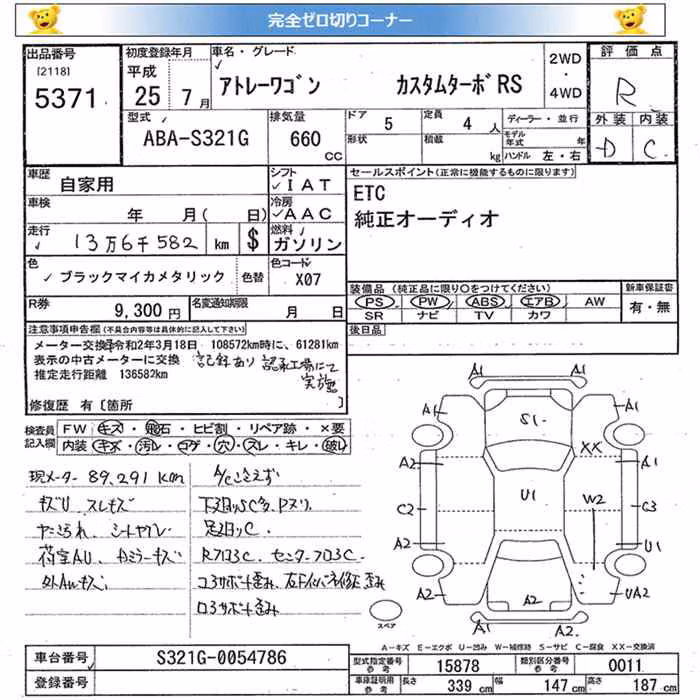 完全ゼロ切りコーナー
出品番号
[2118]
5371
初度登録年月
平成
25 7月
車名・グレード
アトレーワゴン カスタムターボRS
2WD
・
4WD
評価点
R
外装 内装
D C
型式
ABA-S321G
排気量
660
cc
ドア 5
形状
定員 4 人
積載 kg
ディーラー・並行
モデル年式 年
ハンドル 左・右
車歴 自家用
シフト
IAT
車検 年 月( 日)
冷房
AAC
走行 13万6千582 km $
燃料
ガソリン
色 ブラックマイカメタリック 色替
色コード
X07
R券 9,300 円
名変通知期限
月 日
セールスポイント(正常に機能するものに限ります)
ETC
純正オーディオ
装備品 (純正品に限り〇をつけてください)
PS PW ABS エアB AW
SR ナビ TV カワ
新車保証書
有・無
後日品
注意事項申告欄(不具合内容等は具体的に記入して下さい)
メーター交換車令和2年3月18日 108572km時に、61281km
表示の中古メーターに交換 記録あり 認承工場にて実施
推定走行距離 136582km
修復歴 有〔箇所 〕
検査員記入欄
FW キズ・飛石・ヒビ割・リペア跡・×要
内装 キズ・汚レ・コゲ・穴・スレ・キレ・破レ
現メーター 89,291km
キズU スレキズ
シートヤブレ
荷室AU
外AWキズ
A/C冷えず
下廻りSC多 Pヌリ
足廻りC
Rフロ3C センターフロ3C
コ3サポート歪み
ロ3サポート歪み
A1
A1 A1
S1
XX
A2 A1
U1
W2
C2 C3
A2 U1
A2 A2 UA2
A1 A2
スペア
A-キズ E-エクボ U-凹み W-補修跡 S-サビ C-腐食 XX-交換済
車台番号 S321G-0054786
登録番号
型式指定番号
参考
15878
類別区分番号
参考
0011
車庫証明用
参考
長さ 339 cm 幅 147 cm 高さ 187 cm